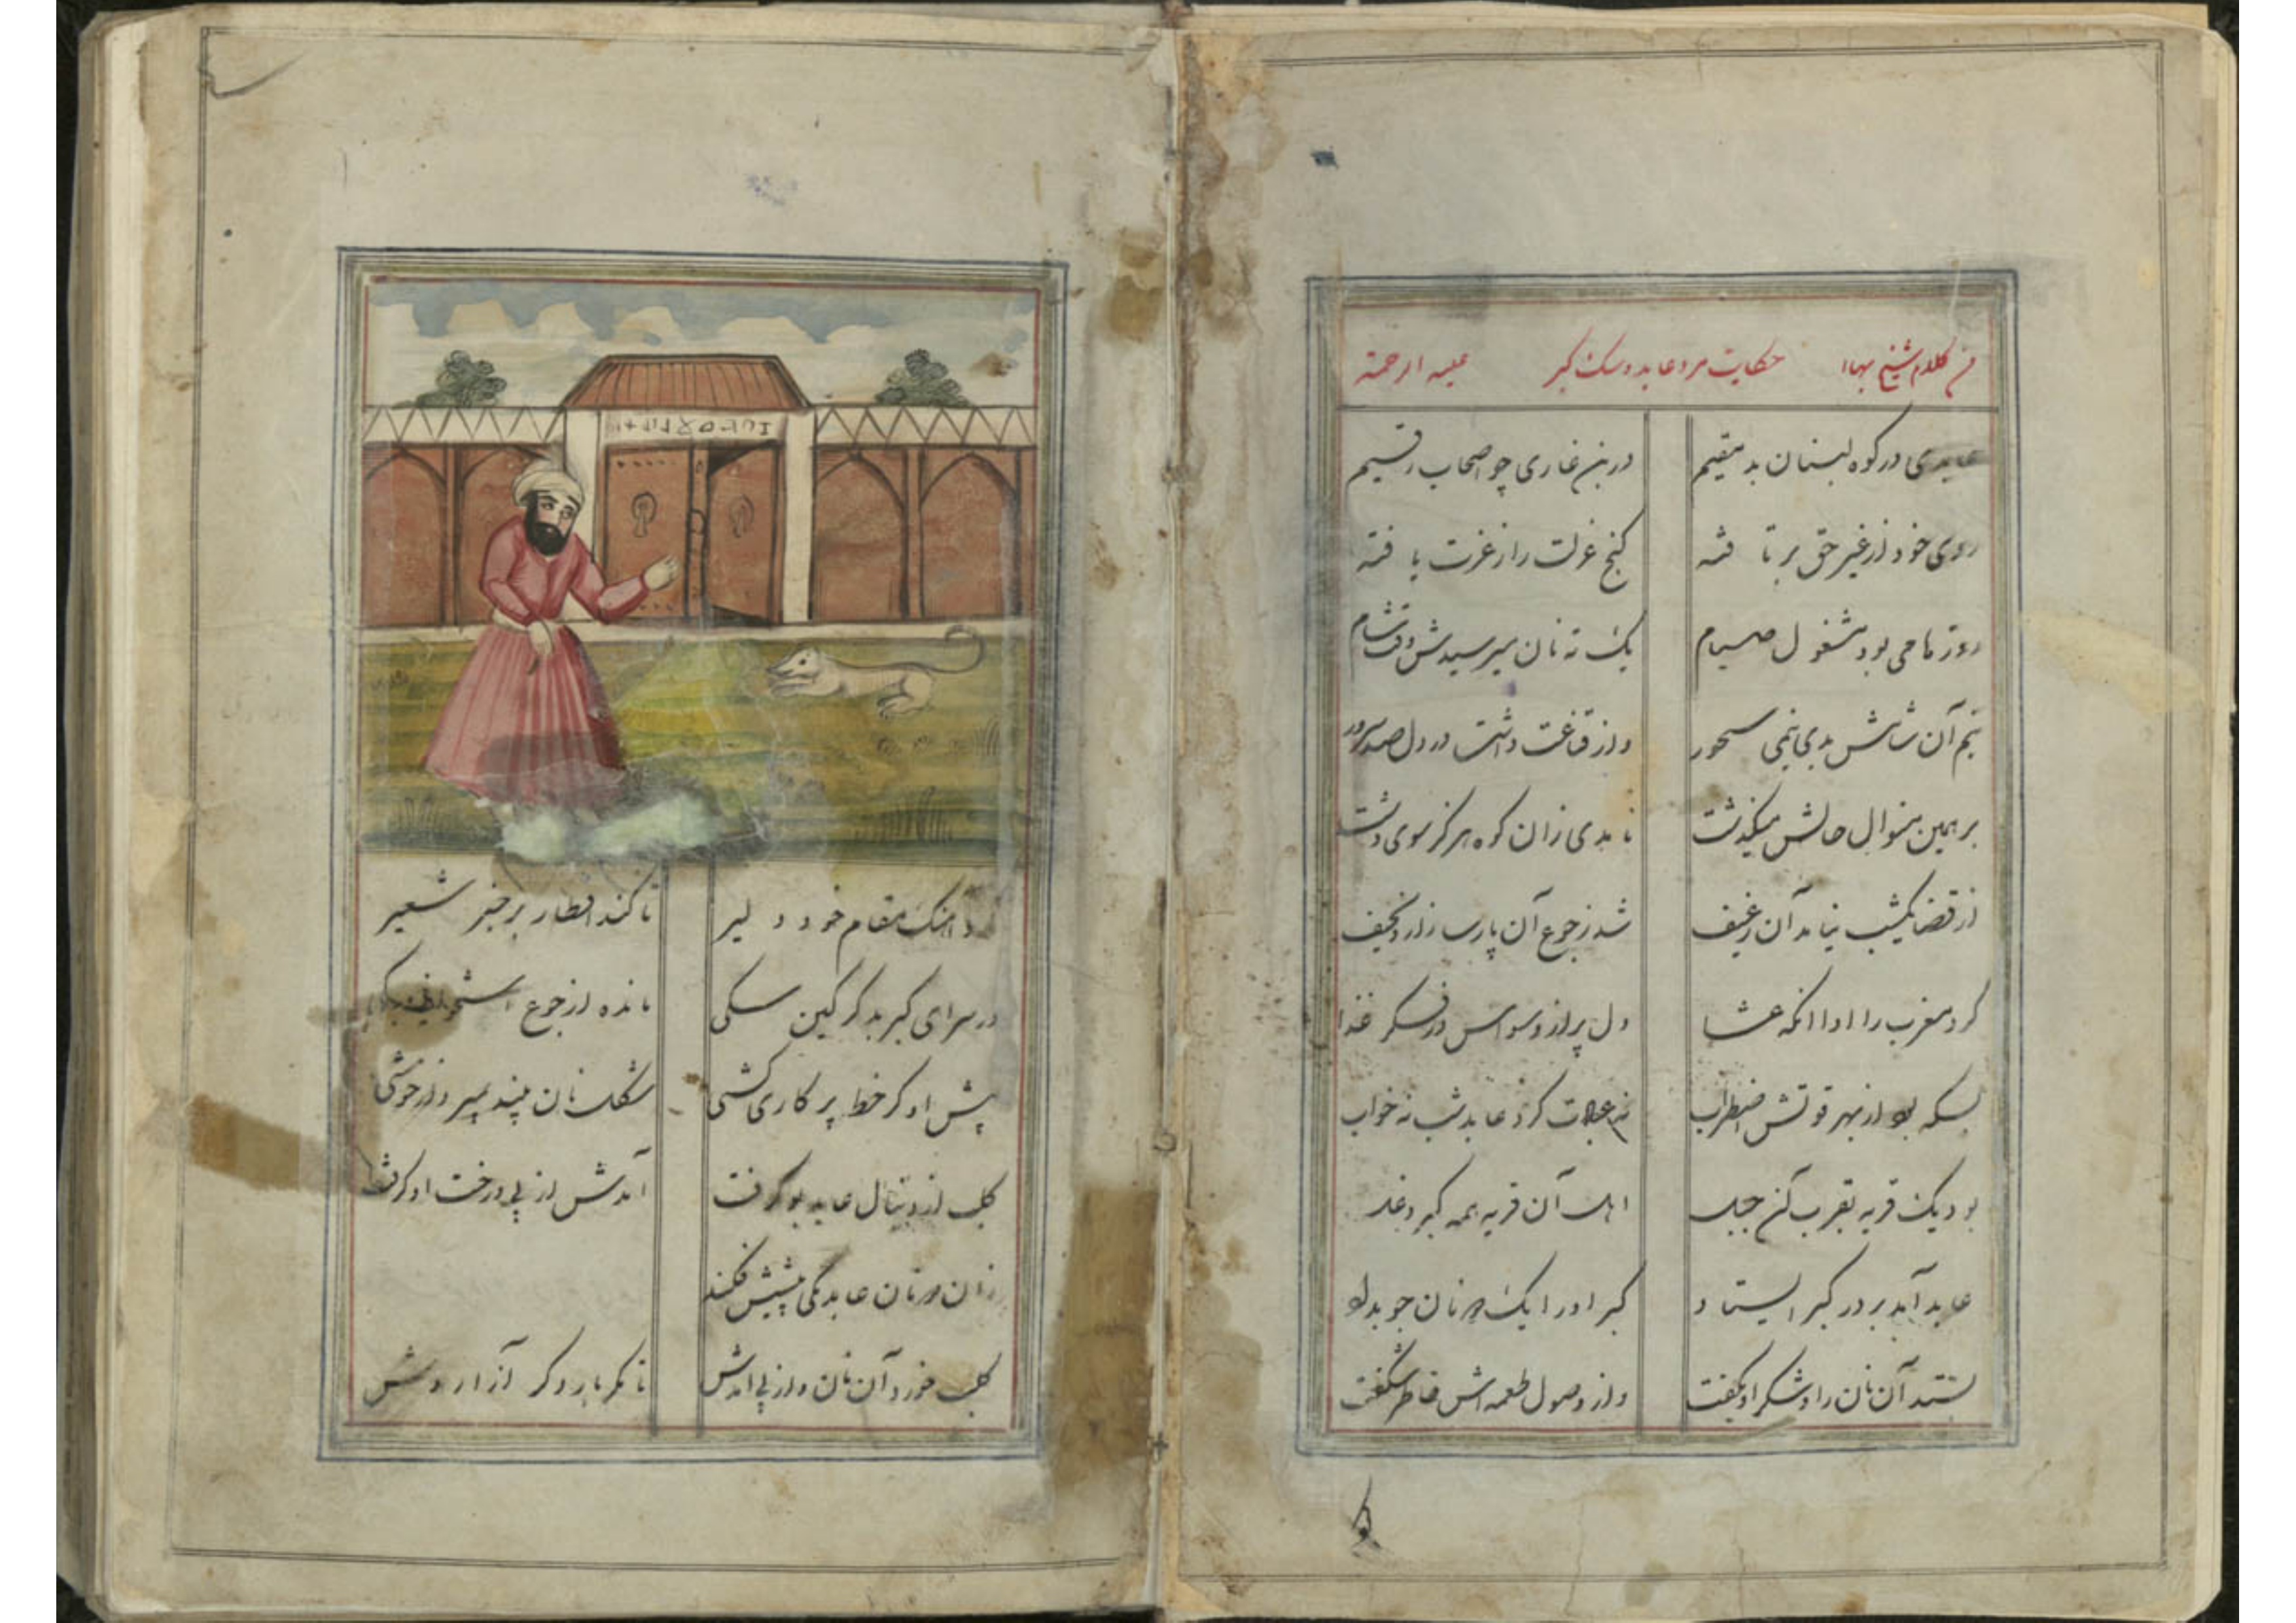 من کلام شیخ بهاا حکایت مرد عابد و سک کبر علیه الرحمة
عابدی در کوه لبنان بد مقیم در بن غاری چو اصحاب رقیم
روی خود از غیر حق بر تافته کنج عزلت را ز عزت یافته
روزها می بود مشغول صیام یک ته نان میرسیدش وقت شام
نیم آن شامش بدی نیمی سحور وز قناعت داشت در دل صد سرور
بر همین منوال حالش میگذشت نامدی زان کوه هرگز سوی دشت
از قضا یکشب نیامد آن رغیف شد ز جوع آن پارسا زار و نحیف
کرد مغرب را ادا انکه عشا دل پر از وسواس در فکر غذا
بسکه بود از بهر قوتش اضطراب نه عبادت کرد عابد شب نه خواب
بود یک قریه بقرب آن جبل اهل آن قریه همه کبر و دغل
عابد آمد بر در کبر ایستاد کبر او را یک دو نان جو بداد
بستد آن نان را و شکر او بگفت وز وصول طعمه اش خاطر شگفت
کرد آهنک مقام خود دلیر تا کند افطار بر خبز شعیر
در سرای کبر بد کرکین سکی مانده از جوع استخوانی
پیش او کر خط پر کاری کشی شکل نان بیند بمیرد از خوشی
کلب از دنبال عابد بو گرفت آمدش از پی و رخت او کرفت
زان دو نان عابد یکی پیشش فکند
کلب خورد آن نان و از پی آمدش تا مکر بار دکر آزاردش